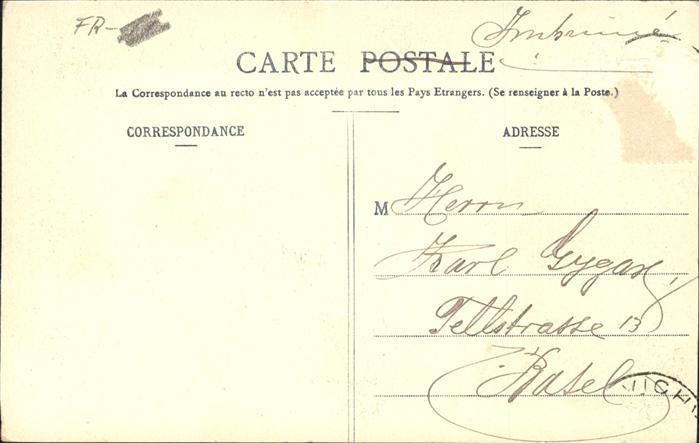 FR-
Imprimé
CARTE POSTALE
La Correspondance au recto n'est pas acceptée par tous les Pays Etrangers. (Se renseigner à la Poste.)
CORRESPONDANCE
ADRESSE
M Herrn
Karl Gygax,
Tellstrasse 13
Basel